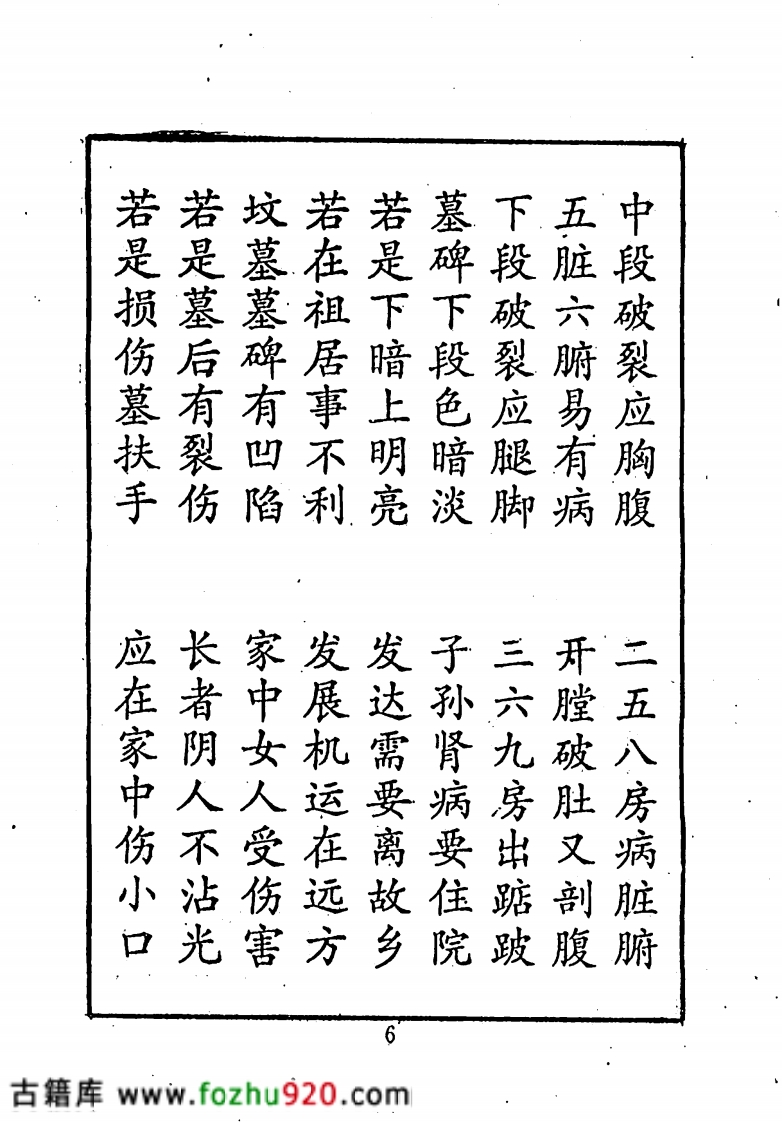 中段破裂应胸腹 二五八房病脏腑
五脏六腑易有病 开膛破肚又剖腹
下段破裂应腿脚 三六九房出踮跛
墓碑下段色暗淡 子孙肾病要住院
若是下暗上明亮 发达需要离故乡
若在祖居事不利 发展机运在远方
坟墓墓碑有凹陷 家中女人受伤害
若是墓后有裂伤 长者阴人不沾光
若是损伤墓扶手 应在家中伤小口
6
古籍库 www.fozhu920.com